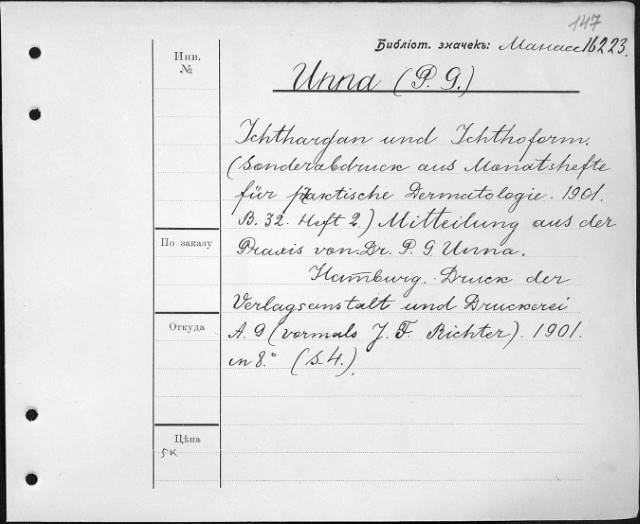 147
Библіот. значекъ: Манасс 16223.
Инв.
№
Unna (P. G.)
Ichthargan und Ichthoform.
(Sonderabdruck aus Monatshefte
für praktische Dermatologie. 1901.
B. 32. Heft 2.) Mitteilung aus der
По заказу
Praxis von Dr. P. G. Unna.
Hamburg. Druck der
Verlagsanstalt und Druckerei
Откуда
A. G (vormals J. F. Richter). 1901.
in 8.° (S. 4.).
Цѣна
5 к